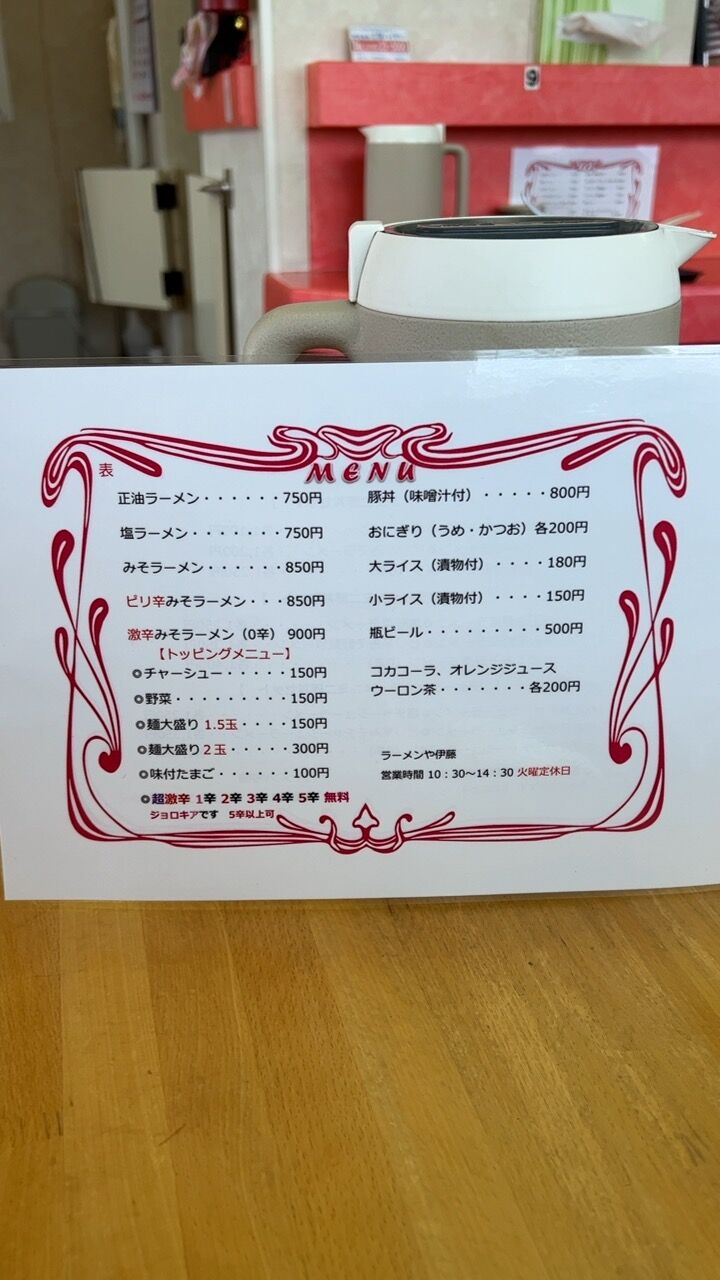 9
MENU
表
正油ラーメン・・・・・・750円
塩ラーメン・・・・・・・750円
みそラーメン・・・・・・850円
ピリ辛みそラーメン・・・850円
激辛みそラーメン（0辛） 900円
【トッピングメニュー】
◎チャーシュー・・・・・150円
◎野菜・・・・・・・・・150円
◎麺大盛り 1.5玉・・・・150円
◎麺大盛り 2玉・・・・・300円
◎味付たまご・・・・・・100円
◎超激辛 1辛 2辛 3辛 4辛 5辛 無料
ジョロキアです 5辛以上可
豚丼（味噌汁付）・・・・・800円
おにぎり（うめ・かつお）各200円
大ライス（漬物付）・・・・180円
小ライス（漬物付）・・・・150円
瓶ビール・・・・・・・・・500円
コカコーラ、オレンジジュース
ウーロン茶・・・・・・・各200円
ラーメンや伊藤
営業時間 10：30～14：30 火曜定休日